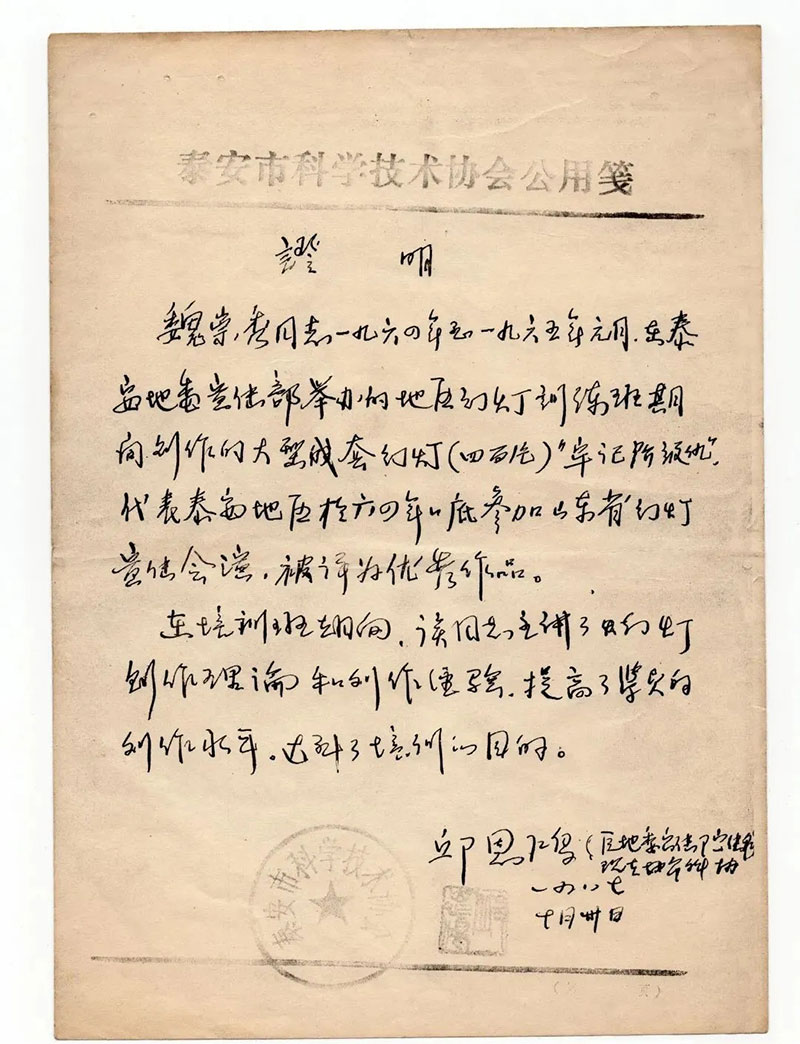 泰安市科学技术协会公用笺
證明
魏崇 同志一九六四年至一九六五年元月,在泰
安地委宣传部举办的地区幻灯训练班期
间,创作的大型成套幻灯(四百片)“牢记阶级仇”,
代表泰安地区於六四年 底参加山东省幻灯
宣传会演,被评为优秀作品。
在培训班期间,该同志主讲了 幻灯
创作理论和创作经验,提高了学员的
创作水平,达到了培训的目的。
邱恩 (原地委宣传部
现在 市科协
一九八七
十月卅日
泰安市科学技术协会